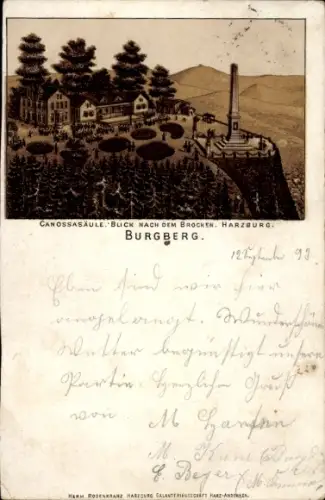 CANOSSASÄULE. BLICK NACH DEM BROCKEN. HARZBURG.
BURGBERG.
12 September 93
Eben sind wir hier
angelangt. Wunderschön
Wetter begünstigt unsere
Partie. Herzliche Gruß
von M
M.
E. Beyer
HERM. ROSENKRANZ HARZBURG GALANTERIEGESCHÄFT HARZ-ANDENKEN.